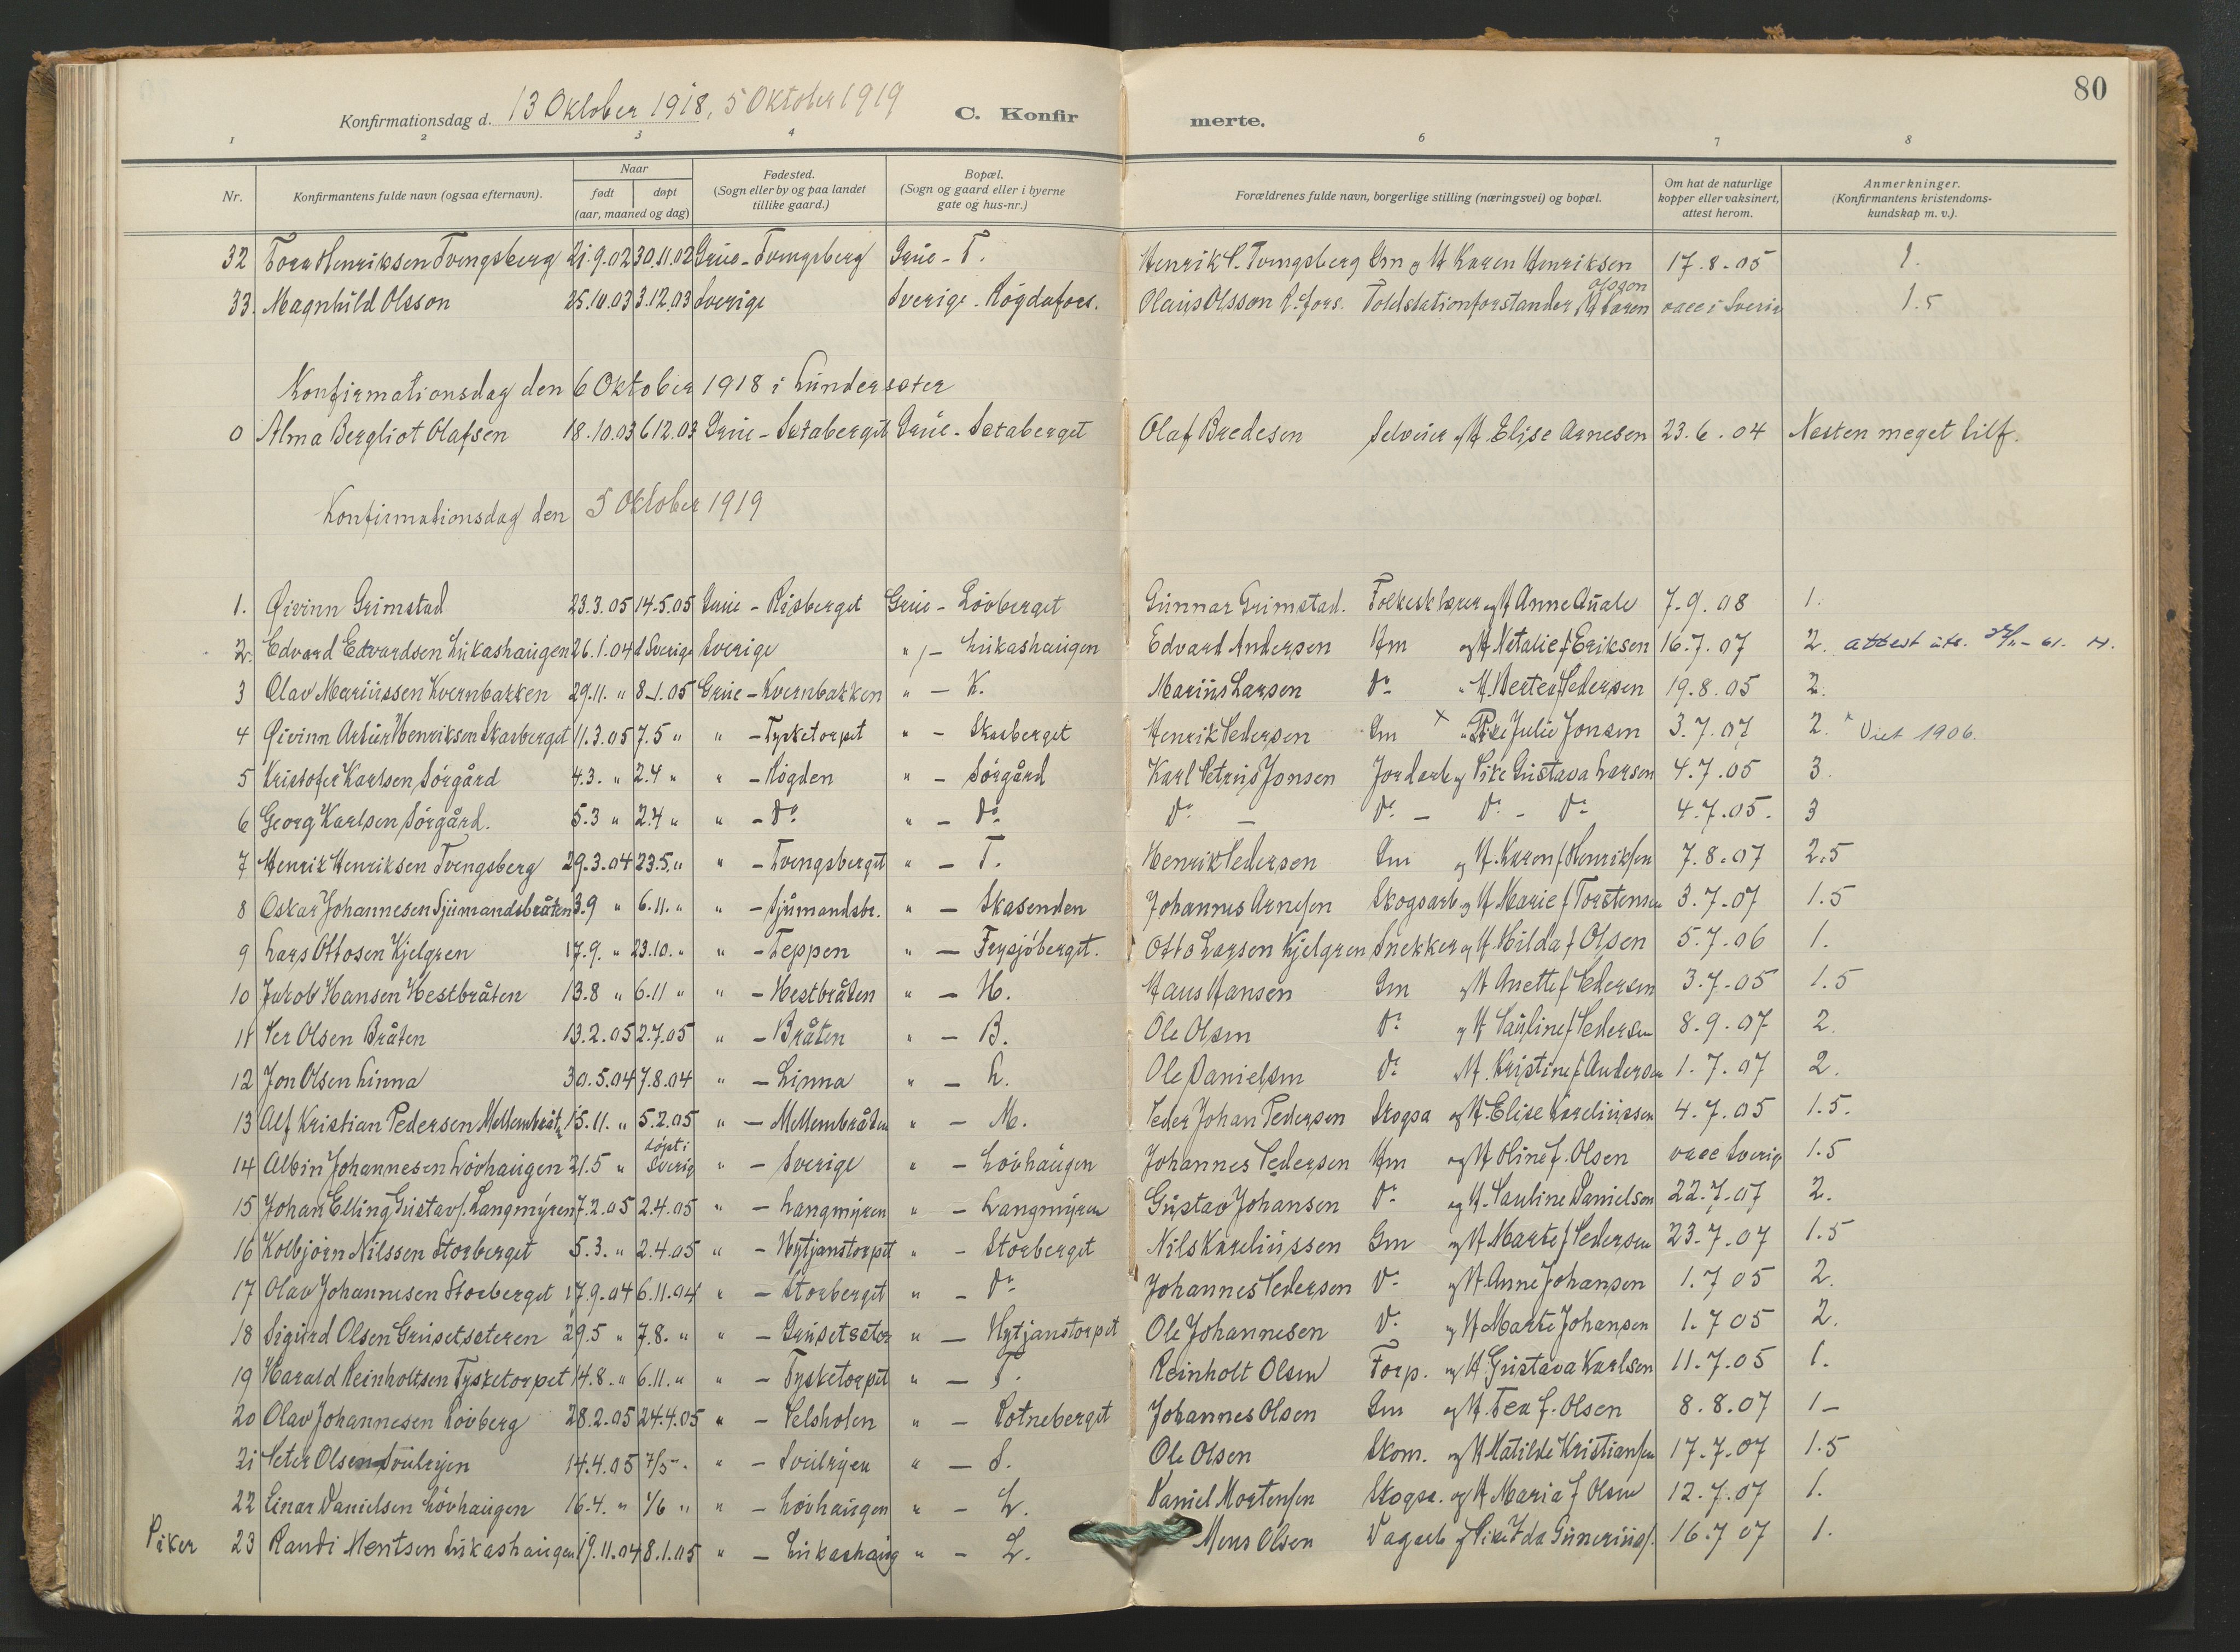 80
Konfirmationsdag d. 13 Oktober 1918, 5 Oktober 1919 C. Konfir merte.
1 2 3 4 6 7 8
Nr. Konfirmantens fulde navn (ogsaa efternavn). Naar født døpt (aar, maaned og dag) Fødested. (Sogn eller by og paa landet tillike gaard.) Bopæl. (Sogn og gaard eller i byerne gate og hus-nr.) Forældrenes fulde navn, borgerlige stilling (næringsvei) og bopæl. Om hat de naturlige kopper eller vaksinert, attest herom. Anmerkninger. (Konfirmantens kristendoms-kundskap m. v.).
32 Tora Henriksen Tvengsberg 21.9.02 30.11.02 Grue - Tvengsberg Grue - T. Henrik P. Tvengsberg Gm og H Karen Henriksen 17.8-05 1.
33. Magnhild Olsson 25.10.03 3.12.03 Sverige Sverige - Røgdafors. Olaus Olsson R.fors. Toldstationforstander H Karen Olsson vacc i Sverig 1.5
Konfirmationsdag den 6 Oktober 1918 i Lundersæter
0 Alma Bergliot Olafsen 18.10.03 6.12.03 Grue - Sætaberget Grue - Sætaberget Olaf Bredesen Selveier og H. Elise Arnesen 23.6.04 Nesten meget tilf.
Konfirmationsdag den 5 Oktober 1919
1. Øivinn Grimstad 23.3.05 14.5.05 Grue - Risberget Grue - Løvberget Gunnar Grimstad. Folkesklærer og H Anne Quale 7.9.08 1.
2. Edvard Edvardsen Lukashaugen 26.1.04 d Sverige Sverige " - Lukashaugen Edvard Andersen Hm og H Netalie f Eriksen 16.7.07 2. attest utr.
3 Olav Mariussen Kvernbakken 29.11. " 8-1.05 Grue - Kvernbakken " - K. Marius Larsen do " H Berte f Pedersen 19.8.05 2.
4 Øivinn Artur Henriksen Skasberget 11.3.05 7.5 " " - Tysketorpet " - Skasberget Henrik Pedersen Gm x " Pike Julie Jonsen 3.7.07 2. x Viet 1906.
5 Kristofer Karlsen Sørgård 4.3. " 2.4 " " - Røgden " - Sørgård Karl Petrus Jonsen Jordarb og Pike Gustava Larsen 4.7.05 3.
6 Georg Karlsen Sørgård. 5.3 " 2.4 " " - do " - do do - do - do - do 4.7.05. 3
7 Henrik Henriksen Tvengsberg 29.3.04 23.5. " " - Tvengsberget " - T. Henrik Pedersen Gm og H. Karen f Henriksen 7.8.07 2.5
8 Oskar Johannesen Sjumandsbråten 3.9 " 6.11. " " - Sjumandsbr. " - Skasenden Johannes Arnesen Skogsarb og H Marie f Torstensen 3.7.07 1.5
9 Lars Ottosen Kjelgren 17.9. " 23.10. " " - Teppen " - Frysjøberget. Otto Larsen Kjelgren Snekker og H. Hilda f Olsen 5.7.06 1.
10 Jakob Hansen Hestbråten 13.8 " 6.11 " " - Hestbråten " - H. Hans Hansen Gm og H Anette f Pedersen 3.7.05 1.5
11 Per Olsen Bråten 13.2.05 2.7.05 " - Bråten " - B. Ole Olsen do og H Pauline f Pedersen 8.9.07 2.
12 Jon Olsen Linna 30.5.04 7.8.04 " - Linna " - L. Ole Danielsen do H. Kristine f Andersen 1.7.07 2.
13 Alf Kristian Pedersen Mellembråt 15.11. " 5.2.05 " - Mellembråten " - M. Peder Johan Pedersen Skogsa og H. Elise Kareliussen 4.7.05 1.5.
14 Albin Johannesen Løvhaugen 21.5 " døpt i Sverig " - Sverige " - Løvhaugen Johannes Pedersen Hm og H Oline f. Olsen vacc Sverig 1.5
15 Johan Elling Gustavs. Langmyren 7.2.05 2.4.05 " - Langmyren " - Langmyren Gustav Johansen do og H. Pauline Danielsen 22.7.07 2.
16 Kolbjørn Nilssen Storberget 5.3. " 2.4.05 " - Hytjanstorpet " - Storberget Nils Kareliussen Gm og H Marte f Pedersen 23.7.07 1.5
17 Olav Johannesen Storberget 17.9.04 6.11.04 " - Storberget " - do Johannes Pedersen do og H. Anne Johansen 1.7 05 2.
18 Sigurd Olsen Grusetseteren 29.5 " 7.8. " " - Grusetsetor " - Hytjanstorpet Ole Johannesen do og H Marte Johansen 1.7 05 2.
19 Harald Reinholtsen Tysketorpet 14.8. " 6.11. " " - Tysketorpet " - T. Reinholt Olsen Forp. og H Gustava Karlsen 11.7.05 1.
20 Olav Johannesen Løvberg 28.2.05 24.4.05 " - Pelsholen " - Rotneberget Johannes Olsen Gm og H. Tea f. Olsen 8.8.07 1-
21 Peter Olsen Svulryen 14.4.05 7/5 - " - Svulryen " - S. Ole Olsen Skom. og H Matilde Kristiansen 17.7.07 1.5
22 Einar Danielsen Løvhaugen 16.4. " 1/6 " " - Løvhaugen " - L. Daniel Mortensen Skogsa. og H Maria f Olsen 12.7.07 1.
Piker 23 Randi Mentsen Lukashaugen 19.11.04 8.1.05 " - Lukashaug " - L. Mens Olsen Dagarb og Pike Ida Guneriusd. 16.7 07 1.